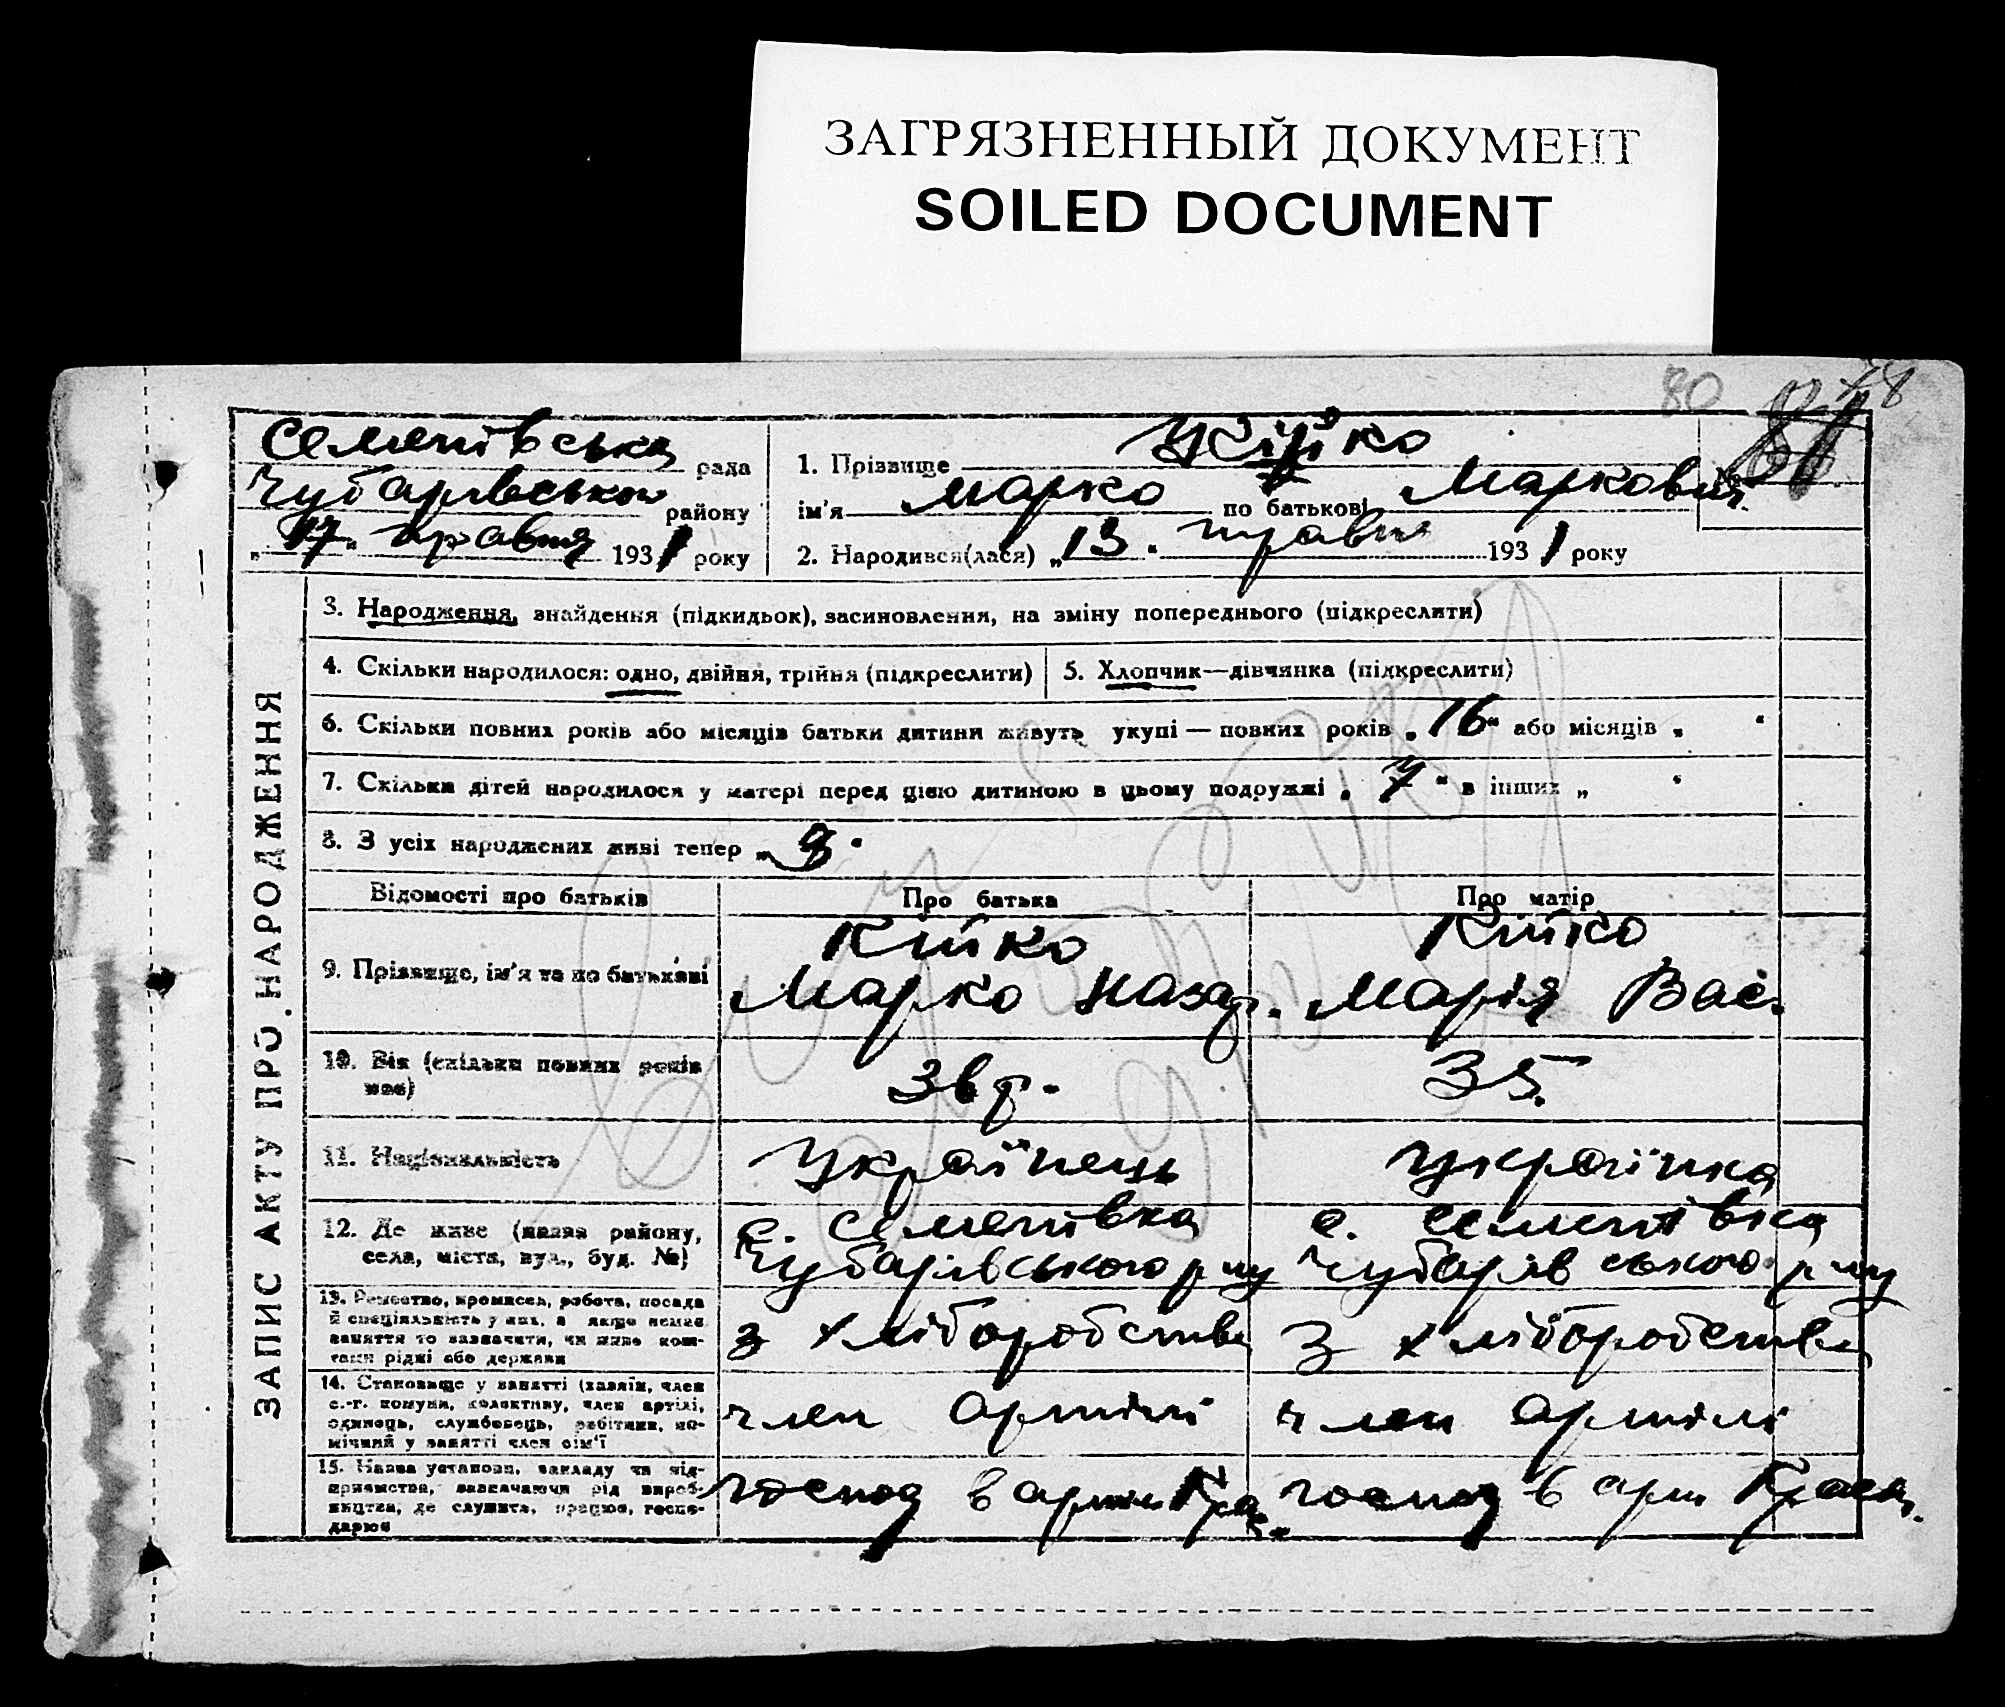 ЗАГРЯЗНЕННЫЙ ДОКУМЕНТ
SOILED DOCUMENT
80 78
Семенівська рада
Чубарівського району
„17" травня 1931 року
1. Прізвище Кійко
ім'я Марко по батькові Маркович
2. Народився(лася) „13" травня 1931 року
ЗАПИС АКТУ ПРО НАРОДЖЕННЯ
3. Народження, знайдення (підкидьок), засиновлення, на зміну попереднього (підкреслити)
4. Скільки народилося: одно, двійня, трійня (підкреслити)
5. Хлопчик—дівчинка (підкреслити)
6. Скільки повних років або місяців батьки дитини живуть укупі — повних років „16" або місяців „ "
7. Скільки дітей народилося у матері перед цією дитиною в цьому подружжі „7" в інших „ "
8. З усіх народжених живі тепер „ "
Відомості про батьків
Про батька
Про матір
9. Прізвище, ім'я та по батькові
Кійко
Марко Назар.
Кійко
Марія Вас.
10. Вік (скільки повних років має)
36 р.
35.
11. Національність
Українець
Українка
12. Де живе (назва району,
села, міста, вул., буд. №)
с. Семенівка
Чубарівського р-ну
с. Семенівка
Чубарівського р-ну
13. Ремество, промисел, робота, посада
й спеціяльність у них, а якщо немає
заняття то зазначити, чи живе кош-
тами рідні або держави
з хліборобства
з хліборобства
14. Становище у занятті (хазяїн, член
с.-г. комуни, колективу, член артілі,
одинець, службовець, робітник, по-
мічний у занятті член сім'ї
член артілі
член артілі
15. Назва установи, закладу чи під-
приємства, зазначаючи рід вироб-
ництва, де служить, працює, госпо-
дарює
господ в арт
господ в арт